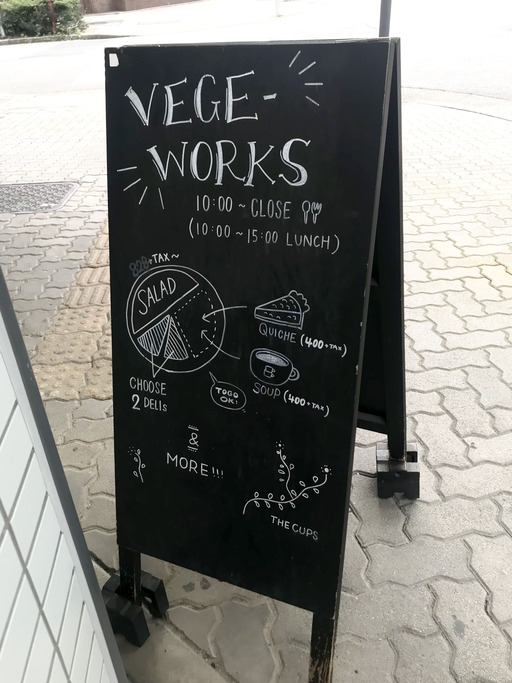 VEGE-
WORKS
10:00 ~ CLOSE
(10:00 ~ 15:00 LUNCH)
+TAX~
SALAD
QUICHE (400+TAX)
CHOOSE
2 DELIS
TOGO
OK!
SOUP (400+TAX)
&
MORE!!!
THE CUPS